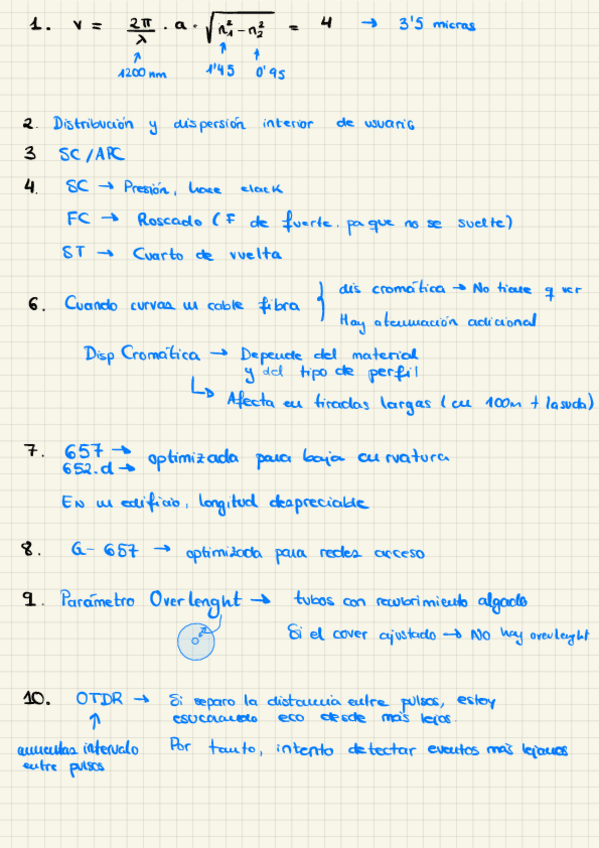 1. V = 2π/λ · a · √(n₁² - n₂²) = 4 → 3'5 micras
1200 nm 1'45 0'95
2. Distribución y dispersión interior de usuario
3 SC/APC
4. SC → Presión, hace clack
FC → Roscado (F de fuerte, pa que no se suelte)
ST → Cuarto de vuelta
6. Cuando curvas un cable fibra { dis cromática → No tiene q ver
Hay atenuación adicional
Disp Cromática → Depende del material
y del tipo de perfil
↳ Afecta en tiradas largas (en 100m t la suda)
7. 657 →
652.d → optimizada para baja curvatura
En un edificio, longitud despreciable
8. G-657 → optimizada para redes acceso
9. Parámetro Overlenght → tubos con recubrimiento algado
Si el cover ajustado → No hay overlenght
10. OTDR → Si separo la distancia entre pulsos, estoy
escuchando eco desde más lejos.
aumentas intervalo
entre pulsos
Por tanto, intento detectar eventos más lejanos